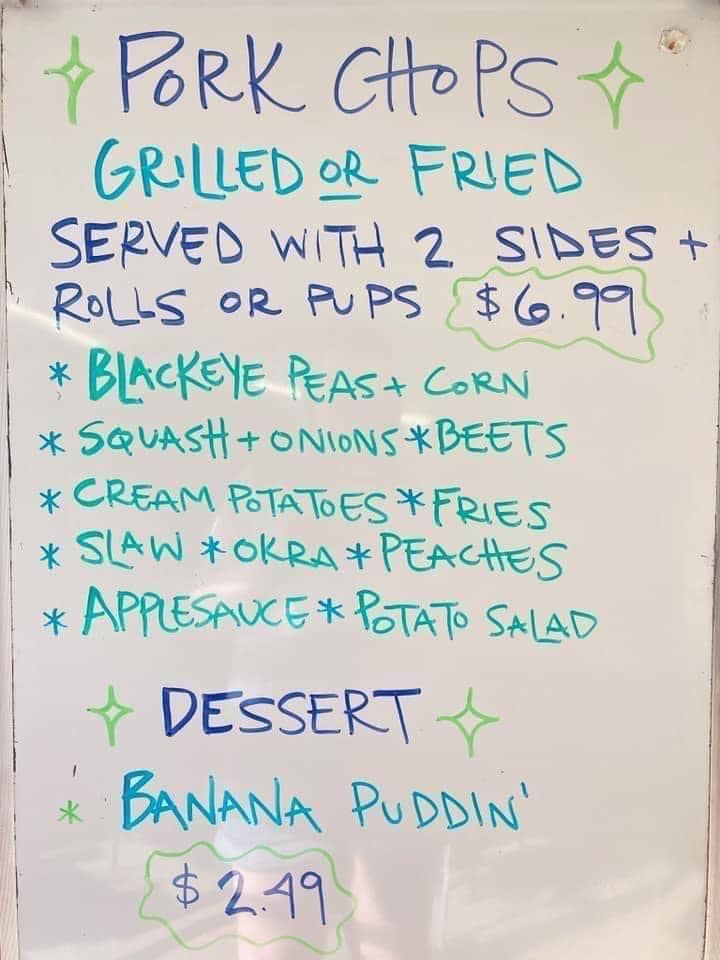 PORK CHOPS
GRILLED OR FRIED
SERVED WITH 2 SIDES +
ROLLS OR PUPS $6.99
* BLACKEYE PEAS + CORN
* SQUASH + ONIONS * BEETS
* CREAM POTATOES * FRIES
* SLAW * OKRA * PEACHES
* APPLESAUCE * POTATO SALAD
DESSERT
* BANANA PUDDIN'
$2.49